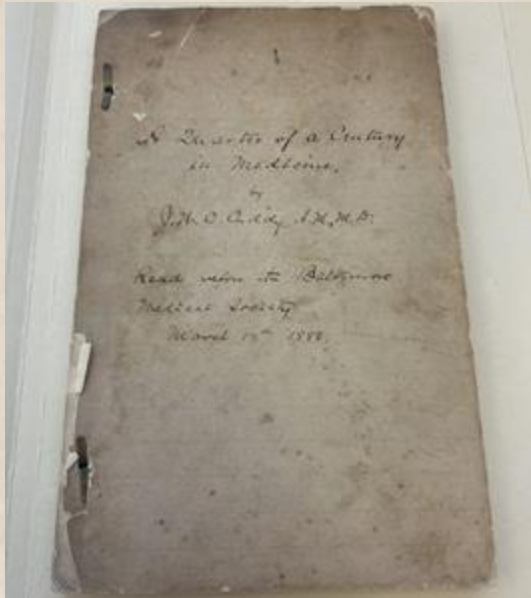 A Quarter of a Century
in Medicine,
by
J.W.C. Cuddy A.M., M.D.
Read before the Baltimore
Medical Society
March